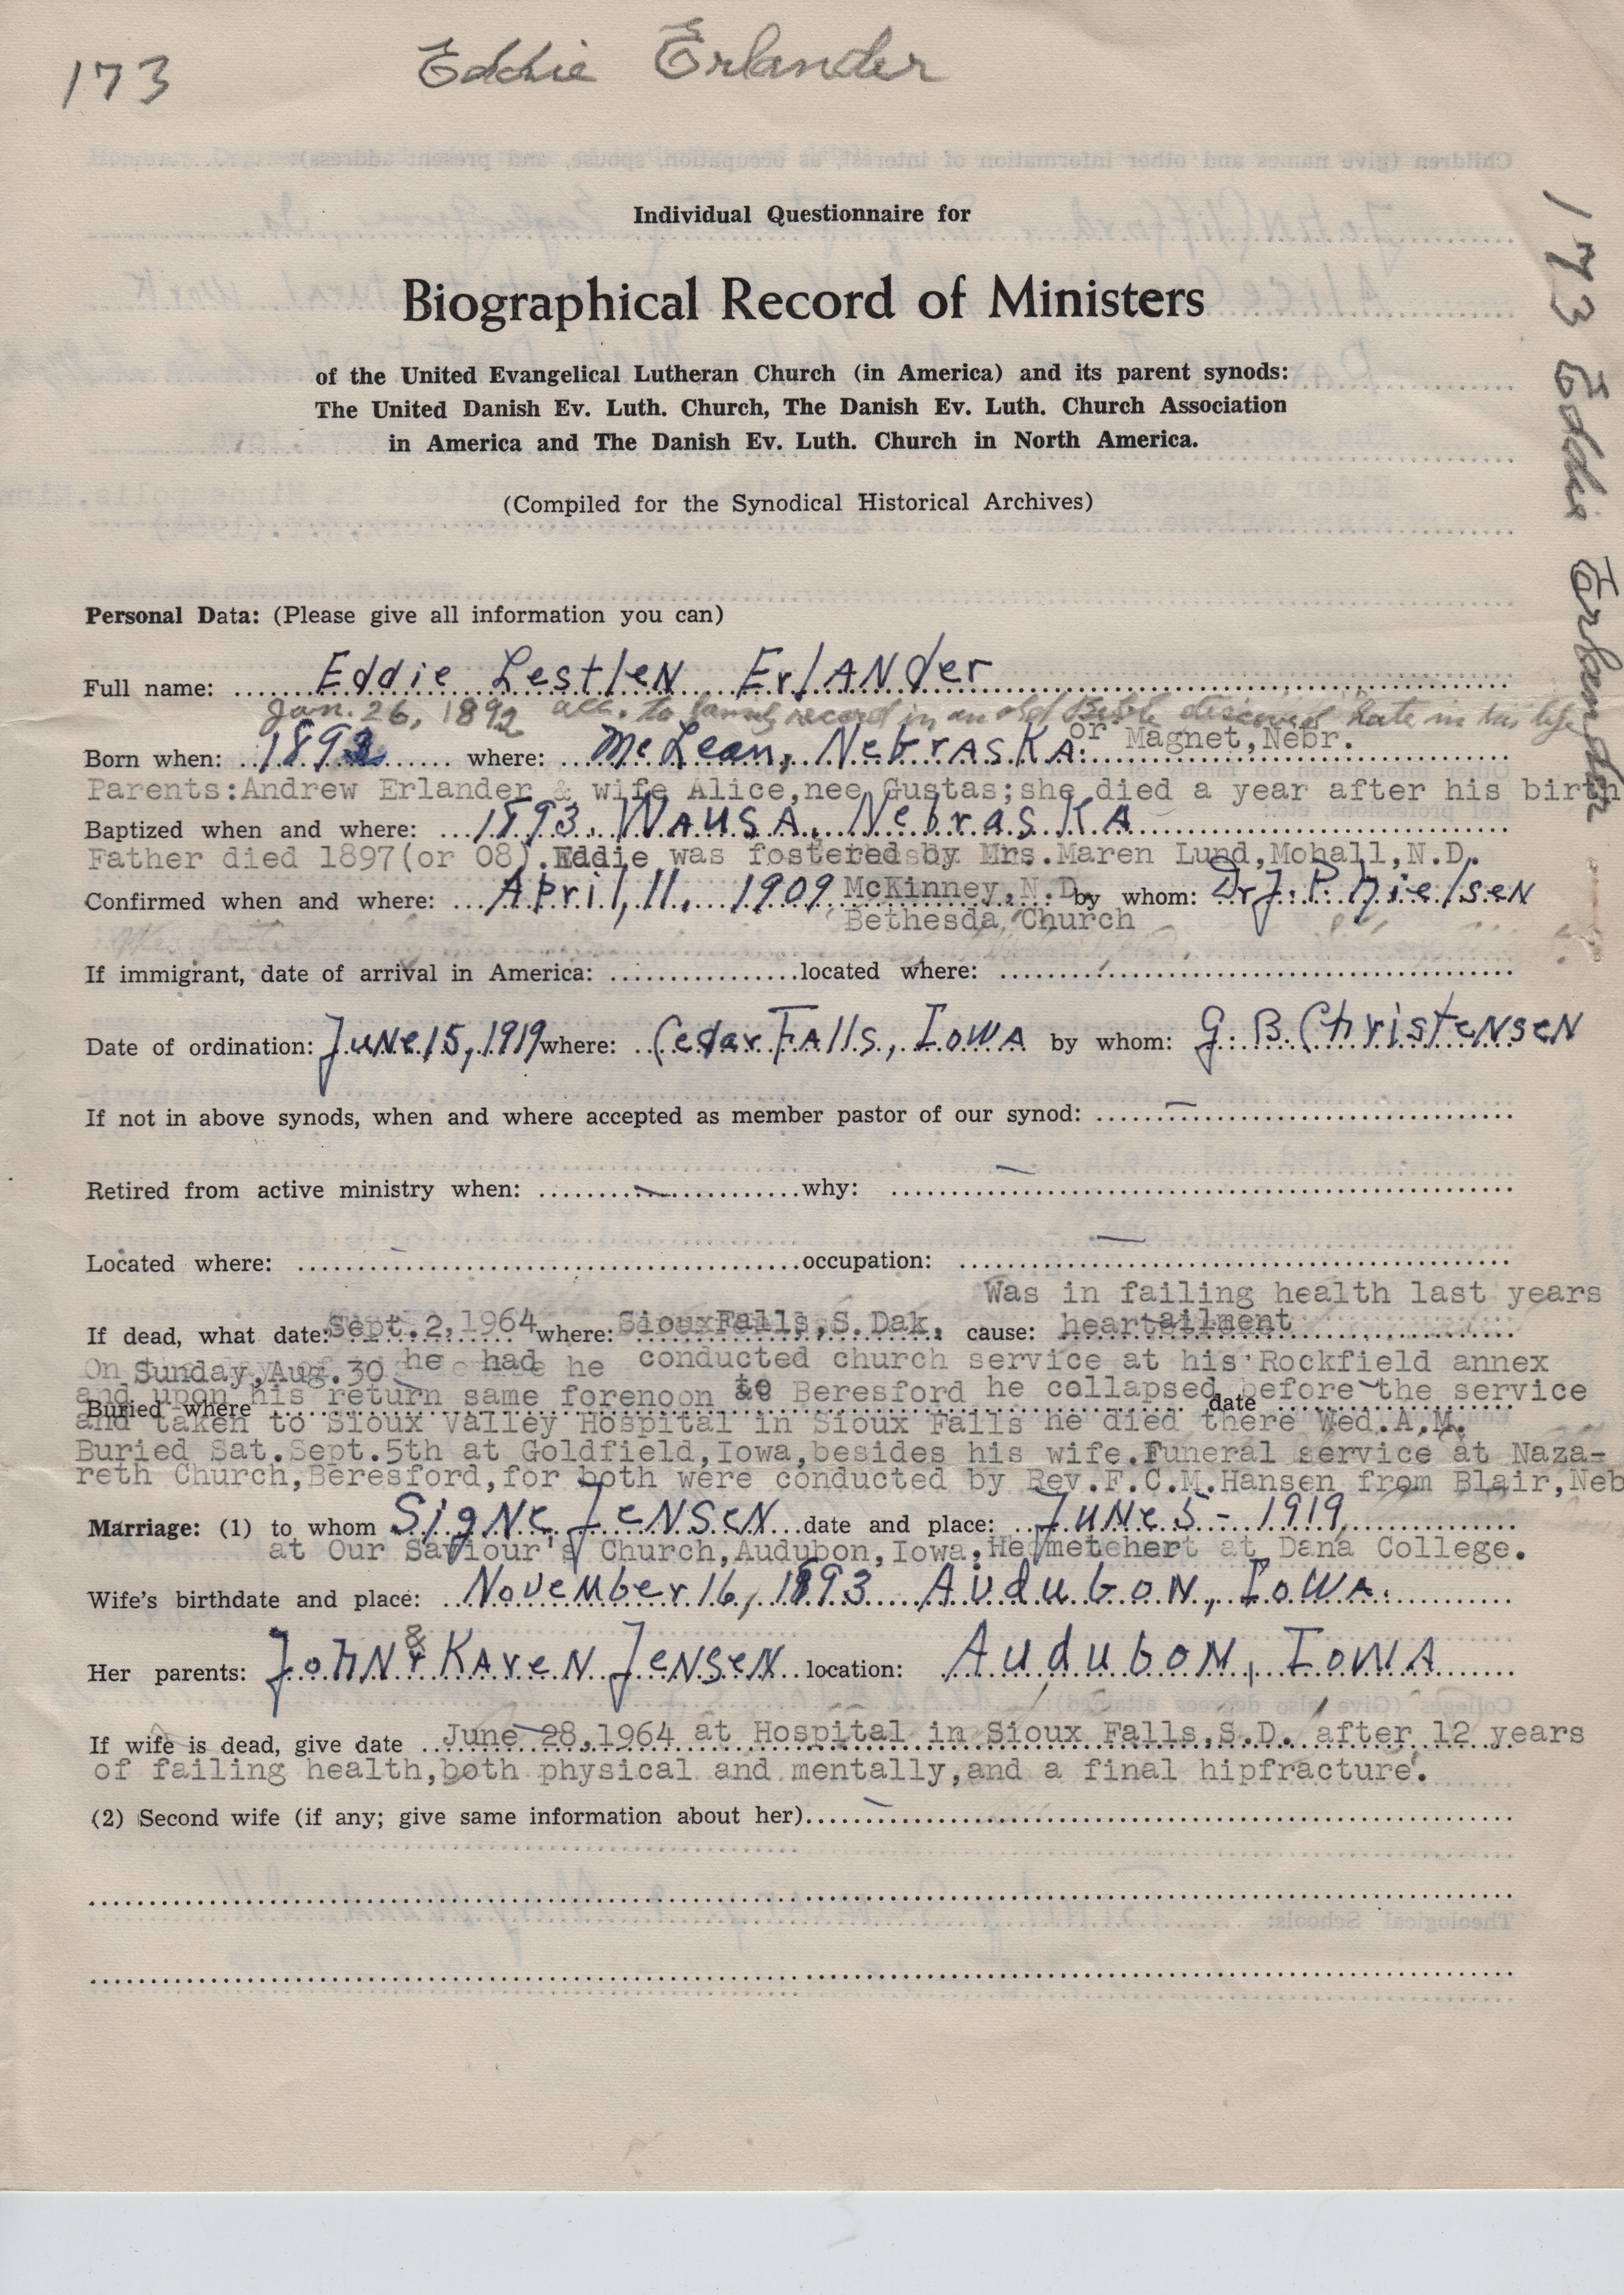 173 Eddie Erlander
Individual Questionnaire for
Biographical Record of Ministers
of the United Evangelical Lutheran Church (in America) and its parent synods:
The United Danish Ev. Luth. Church, The Danish Ev. Luth. Church Association
in America and The Danish Ev. Luth. Church in North America.
(Compiled for the Synodical Historical Archives)
173 Eddie Erlander
Personal Data: (Please give all information you can)
Full name: Eddie Lestlen Erlander
Jan. 26, 1892 acc. to family record in an old Bible discovered late in his life
Born when: 1892 where: McLean, Nebraska. or Magnet,Nebr.
Parents:Andrew Erlander & wife Alice,nee Gustas;she died a year after his birth
Baptized when and where: 1893. Wausa, Nebraska
Father died 1897(or 08).Eddie was fostered by Mrs.Maren Lund,Mohall,N.D.
Confirmed when and where: April, 11, 1909 McKinney,N.D. by whom: Dr J. P. Nielsen
Bethesda Church
If immigrant, date of arrival in America: located where:
Date of ordination: June 15, 1919 where: Cedar Falls, Iowa by whom: G. B. Christensen
If not in above synods, when and where accepted as member pastor of our synod: —
Retired from active ministry when: — why: —
Located where: — occupation: —
Was in failing health last years
If dead, what date: Sept.2,1964 where: SiouxFalls,S.Dak. cause: heartailment
On Sunday,Aug.30 he had he conducted church service at his Rockfield annex
and upon his return same forenoon to Beresford he collapsed before the service
Buried where date
and taken to Sioux Valley Hospital in Sioux Falls he died there Wed.A.M.
Buried Sat.Sept.5th at Goldfield,Iowa,besides his wife.Funeral service at Naza-
reth Church,Beresford,for both were conducted by Rev.F.C.M.Hansen from Blair,Neb
Marriage: (1) to whom Signe Jensen date and place: June 5 - 1919
at Our Saviour's Church,Audubon,Iowa, He met her at Dana College.
Wife's birthdate and place: November 16, 1893 Audubon, Iowa.
Her parents: John & Karen Jensen location: Audubon, Iowa
If wife is dead, give date June 28,1964 at Hospital in Sioux Falls,S.D. after 12 years
of failing health,both physical and mentally,and a final hipfracture.
(2) Second wife (if any; give same information about her) —